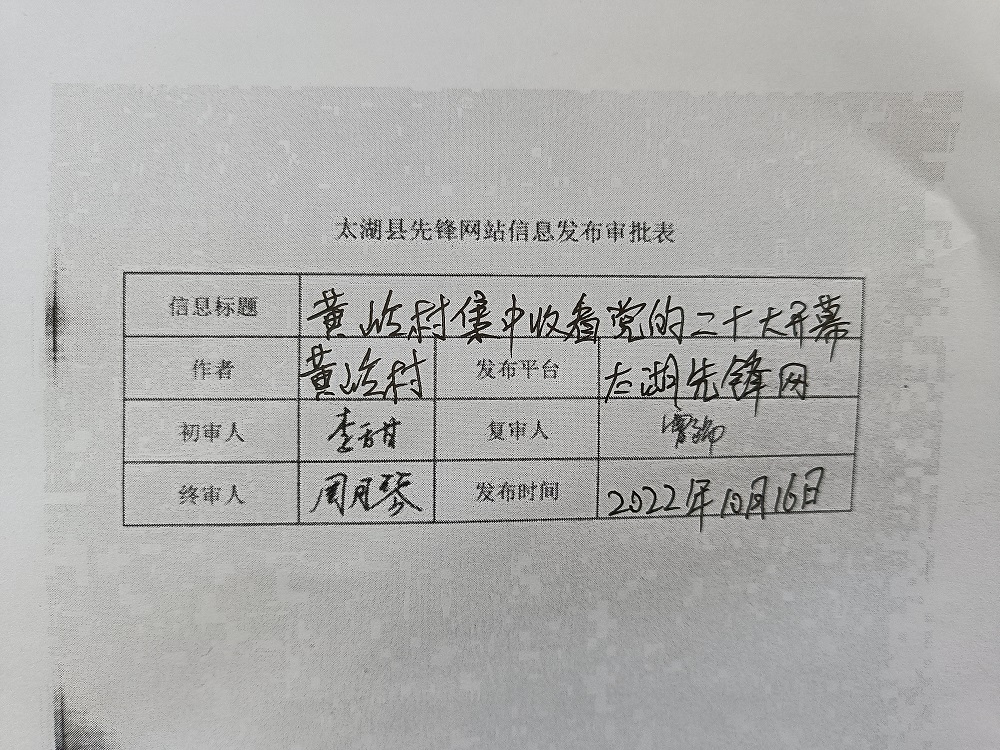 太湖县先锋网站信息发布审批表
信息标题 黄岭村集中收看党的二十大开幕
作者 黄岭村 发布平台 太湖先锋网
初审人 李甜 复审人
终审人 周月琴 发布时间 2022年10月16日